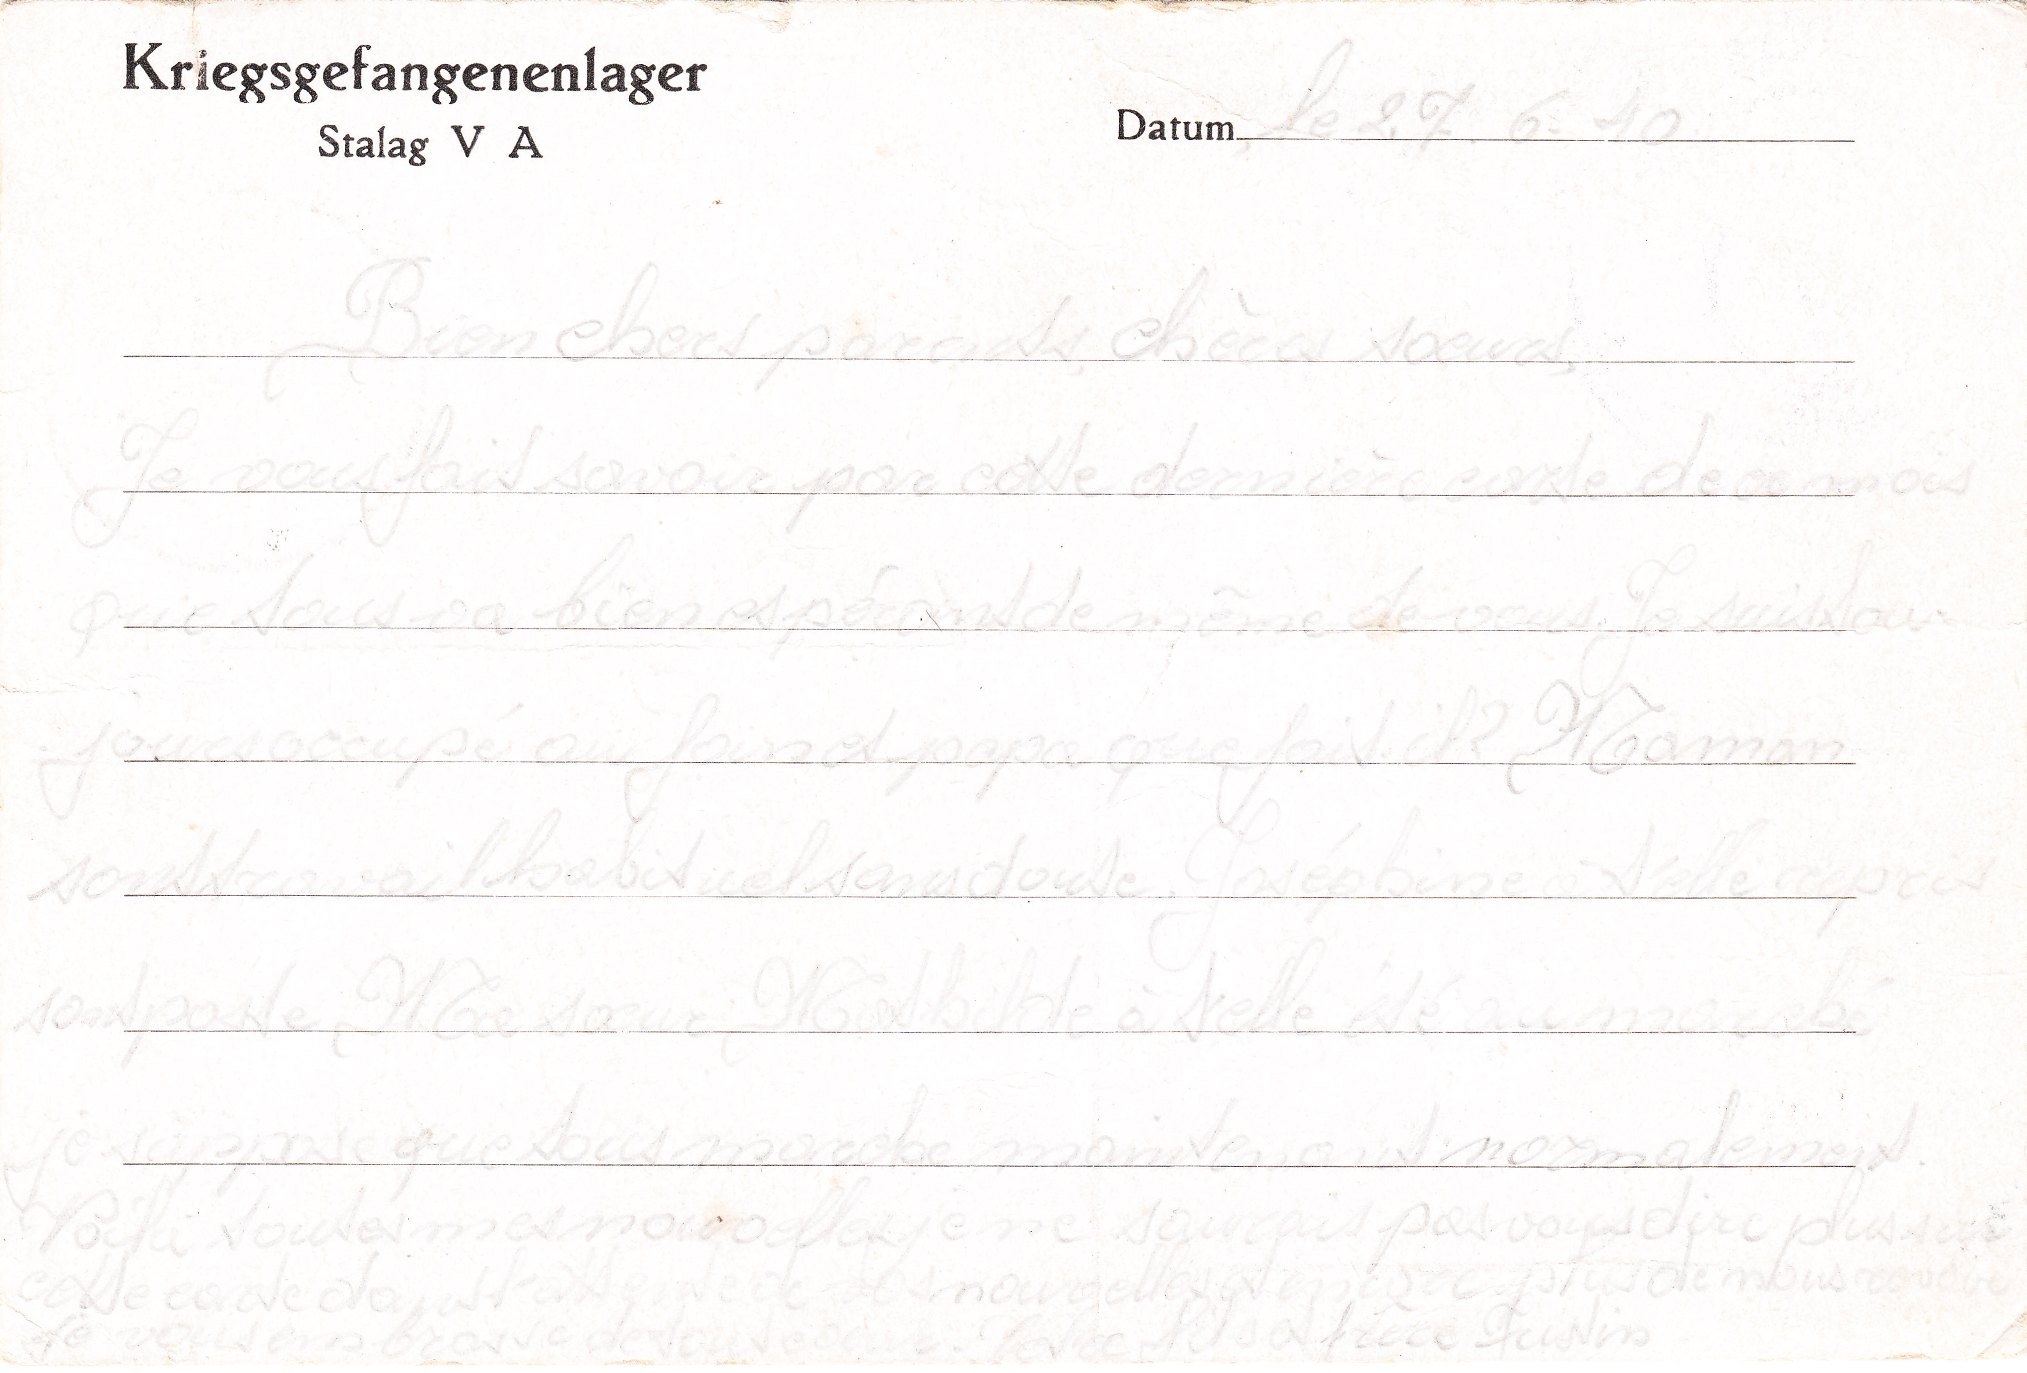 Kriegsgefangenenlager
Stalag V A
Datum le 27. 6. 40.
Bien chers parents, chères sœurs,
Je vous fait savoir par cette dernière carte de ce mois
que tous va bien espérants de même de vous. Je suis tou-
jours occupé au foin et papa que fait-il? Maman
sont travail habituel sans doute. Joséphine à t'elle repris
sont poste Ma sœur Mathilde à t'elle été au marché
je suppose que tous marche maintenant normalement.
Voilà toutes mes nouvelles je ne saurais pas vous dire plus sur
cette carte dans l'attente de vos nouvelles et encore plus de nous revoir
Je vous embrasse de tous cœur. Votre fils et frère Justin